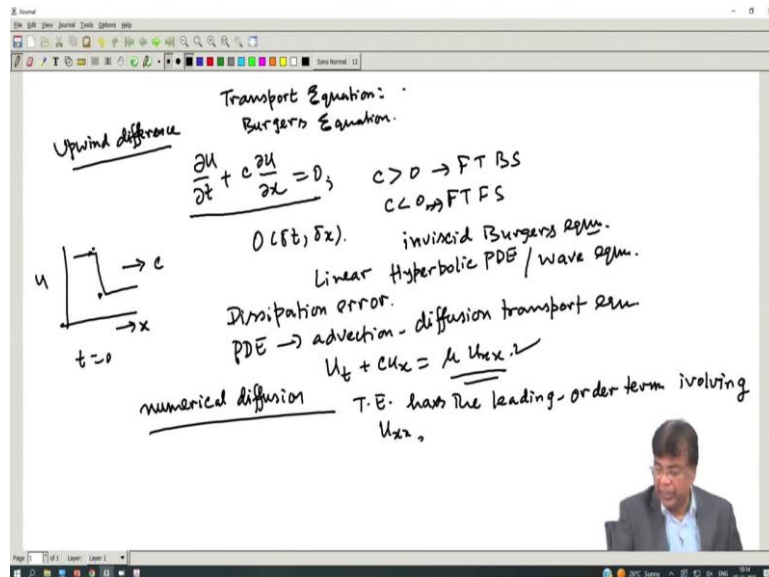 Xournal
File Edit View Journal Tools Options Help
Sans Normal 12
Transport Equation:
Burgers Equation.
Upwind difference
∂u/∂t + c ∂u/∂x = 0, c>0 → FTBS
c<0, → FTFS
O(δt, δx). inviscid Burgers eqn.
Linear Hyperbolic PDE / wave eqn.
u → c
→ x
t=0
Dissipation error.
PDE → advection-diffusion transport eqn.
u_t + cu_x = μ u_xx.
numerical diffusion T.E. has the leading-order term ivolving
u_xx,
Page 1 of 1 Layer: Layer 1
26°C Sunny ENG 10:14